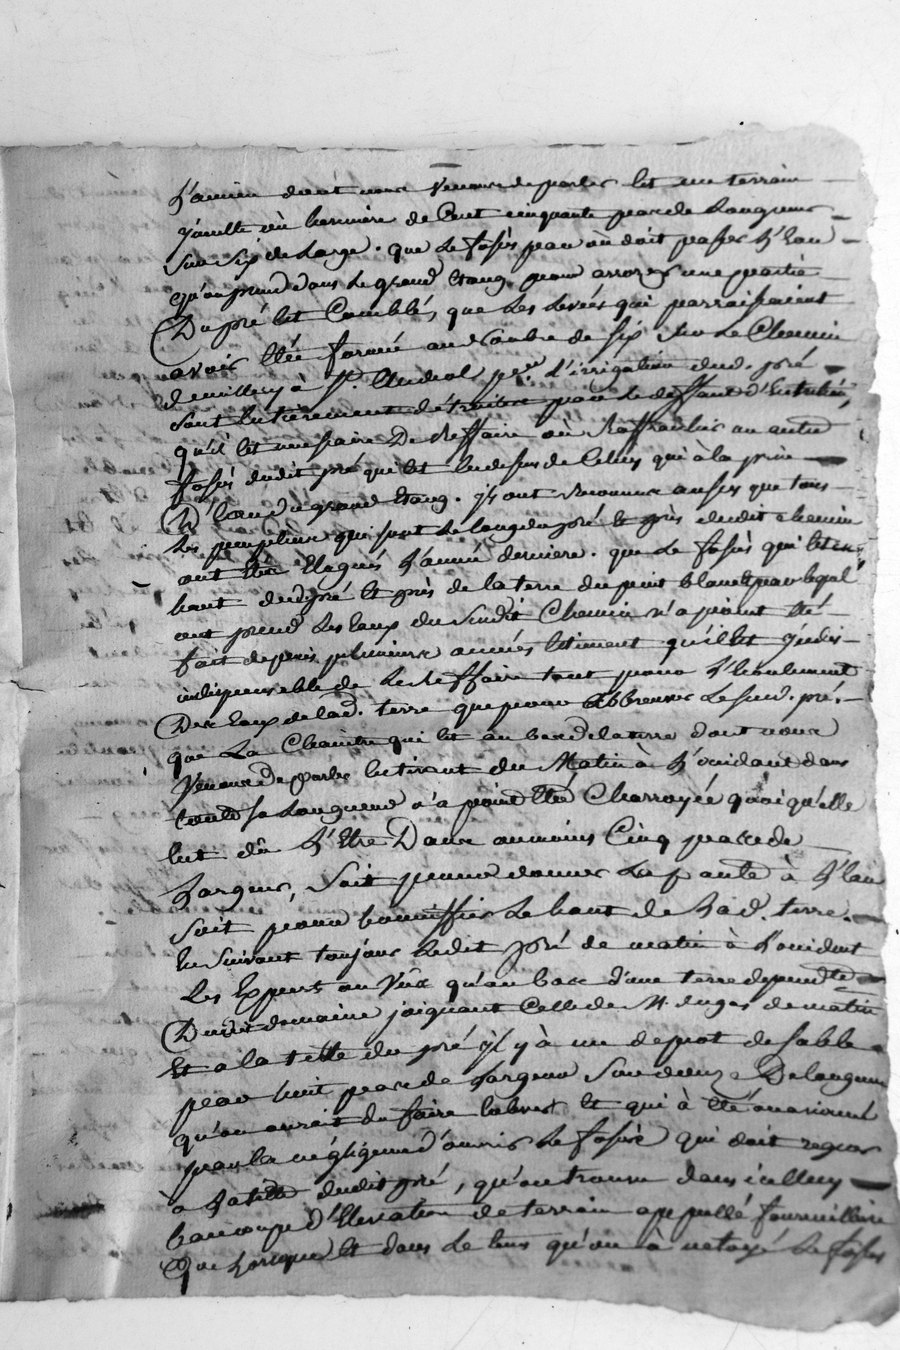 L'ancien dont nous venons de parler est une terrain
inculte en lanière de Cent cinquante pas de Longueur
Sur Six de Large. que le fossés pour où doit passer L'Eau
qu'on prend dans Le grand Etang pour arrozer une partie
Du pré Est Comblé, que Les Levées qui parraissaient
avoir Etée formée au nombre de six Sur Le Chemin
de milluy à St. Andeol pr. L'irrigation dud. pré
sont Entièrement détruites par Le deffaut d'Entretien,
qu'il Est necessaire De Reffaire où Raffraichir un autre
fossés dudit pré qui Est Au dessus de Celluy qui à la prise
D'Eau du grand Etang. jls ont Reconnue aussy que tous
Les peupliers qui sont Le Long du pré Et près dudit chemin
ont Etée Elagués L'année derniere. que Le fossés qui Est en
haut dud. pré Et près de la terre du petit
ont prend Les Eaux du Susdit Chemin n'a point Eté
fait depuis plusieurs années Estiment qu'il Est
indispensable de Le Reffaire tant pour L'Ecoulement
Des Eaux de lad. terre que pour Abbreuver Le Sud. pré.
que La Chaintre qui Est au bas de la terre dont nous
Venons De parler En tirant du Matin à L'occidant dans
toutte sa Longueur n'a point Etée Charroyée quoi qu'elle
Eut dû L'Etre Dans aumoins Cinq pas de
Largeur, Soit pour donner La pante à L'Eau
Soit pour bonniffier Le haut de Lad. terre.
En Suivant toujour Ledit pré de matin à L'occidant
Les Experts ont Vûs qu'au bas d'une terre dependte
Dudit domaine joignant Celle de Mr de matin
Et a la tette du pré jl y à un depot de sable
pour huit pas de Largeur Sur douze De longueur
qu'on aurait du faire Enlever Et qui à Eté occasionné
par la négligence d'ouvrir Le fossés qui doit regner
à La tette dudit pré, qu'on trouve dans icelluy
beaucoup d'Elevation de terrain appellé fourmillière
Que Lorsque Et dans Le tems qu'on à netoyé Le fossés